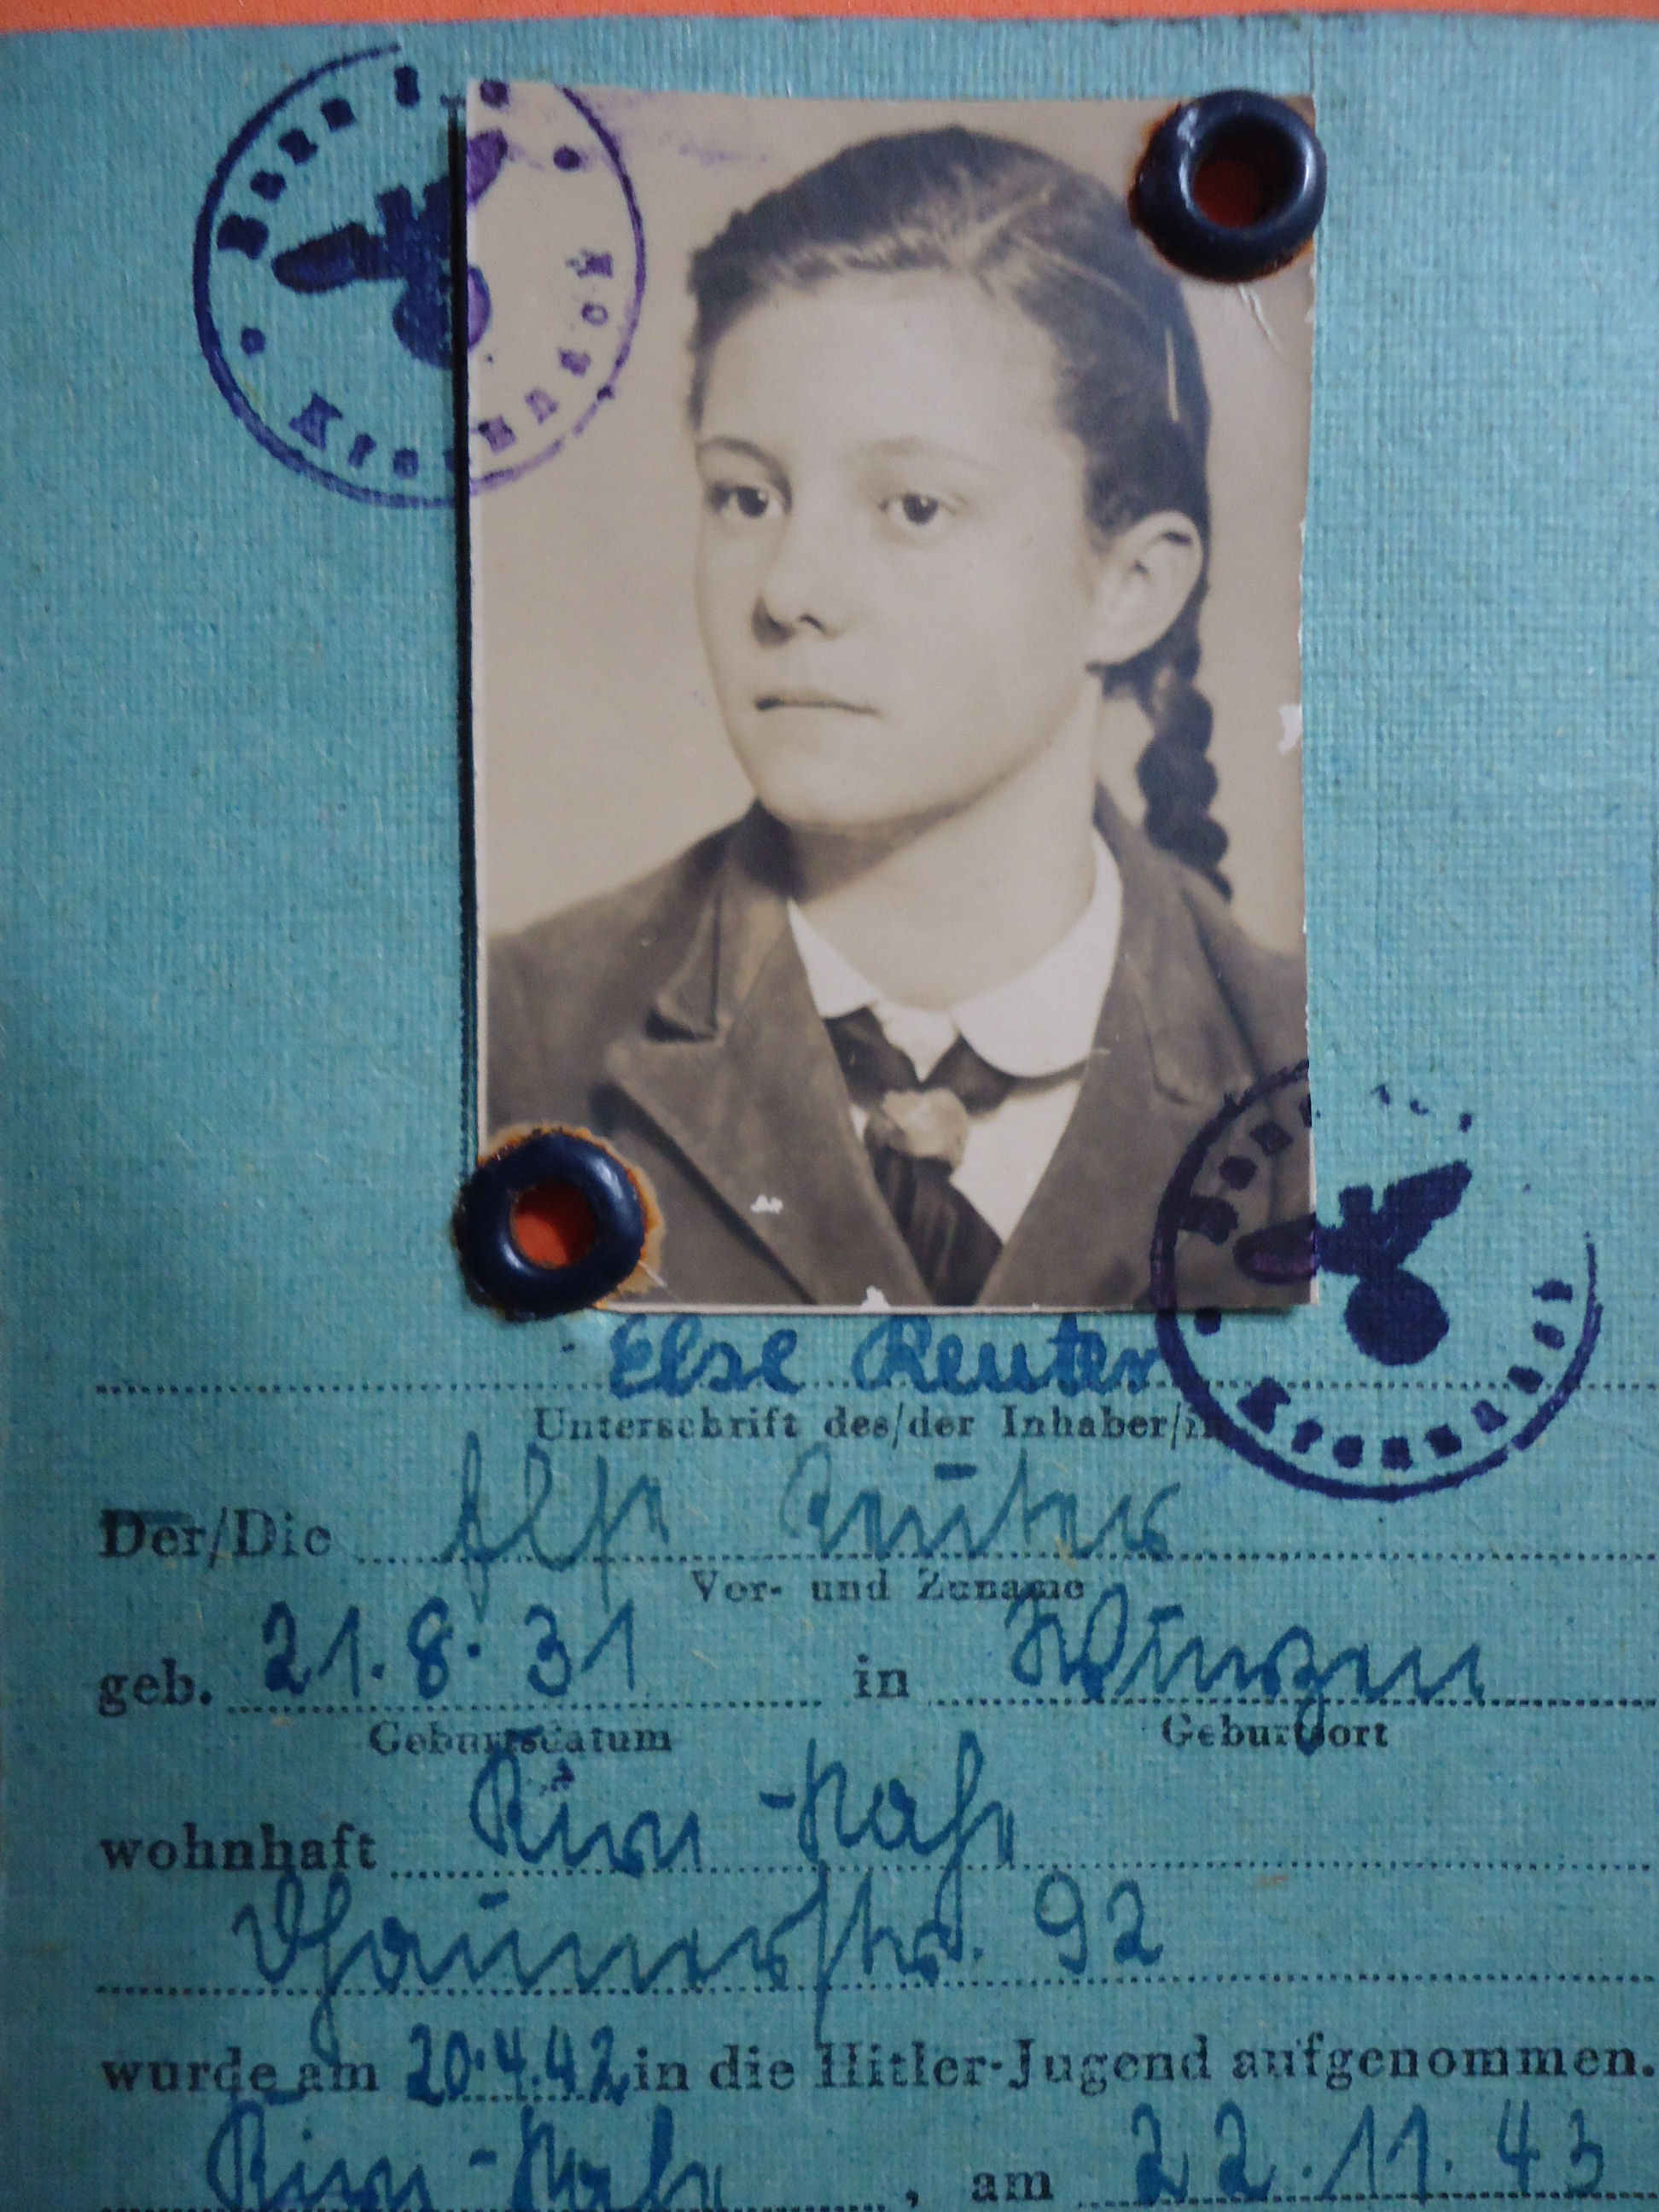 Bann
Kreuznach
Else Reuter
Bann
Kreuznach
Unterschrift des/der Inhaber/in
Der/Die Else Reuter
Vor- und Zuname
geb. 21.8.31 in
Geburtsdatum Geburtsort
wohnhaft Kirn-Nahe
92
wurde am 20.4.42 in die Hitler-Jugend aufgenommen.
Kirn-Nahe, am 22.11.43